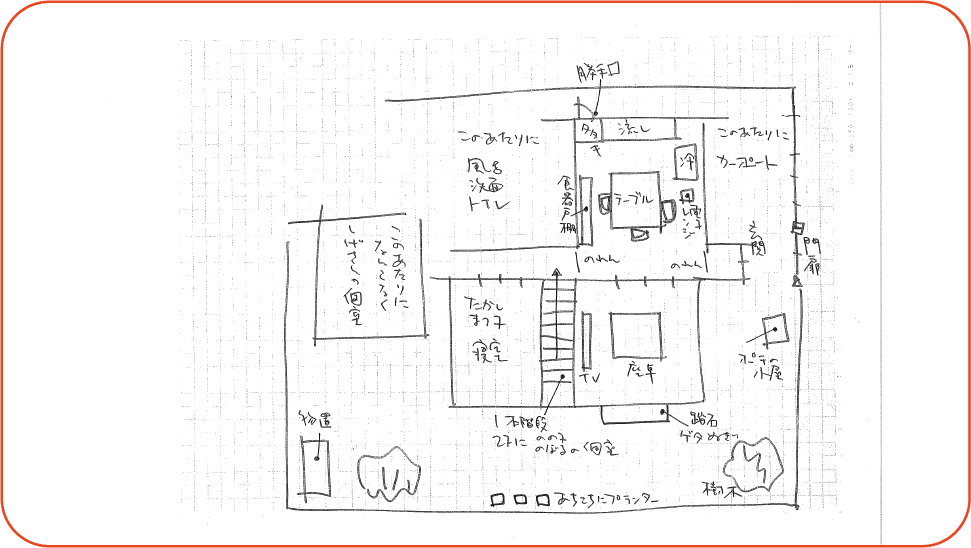 勝手口
タタキ
流し
このあたりに
風呂
洗面
トイレ
このあたりに
カーポート
冷
食器戸棚
テーブル
電子レンジ
玄関
門扉
のれん
のれん
このあたりに
なんとなく
しげさんの個室
たかし
まつ子
寝室
TV
座卓
ポチの
小屋
物置
1つ階段
2Fに のの子
のぼるの個室
踏石
ゲタぬぎ
樹木
あちこちにプランター